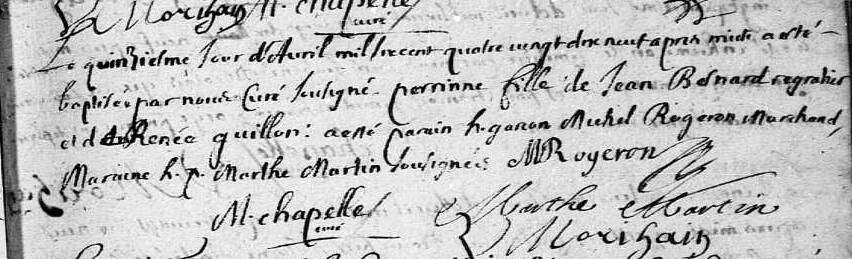 Morihain M. chapelle
curé
Le quinzieme Jour d'Avril mil sixcent quatre vingt dix neuf apres midi a esté
baptisée par nous Curé sousigné perrinne fille de Jean Besnard regratier
et de Renee quillon: a esté parain h. garcon Michel Rogeron Marchand,
Maraine h. p. Marthe Martin sousignés MRogeron
M. chapelle Marthe Martin
curé Morihain